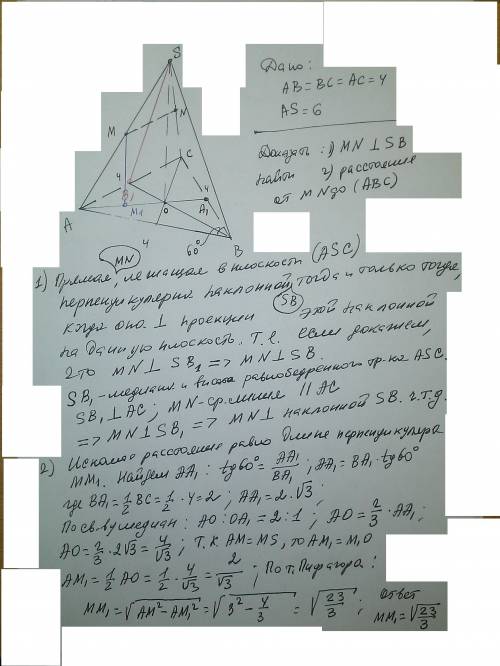 S
M
N
C
4
B₁
4
A
M₁
O
A₁
60°
B
4
Дано:
AB = BC = AC = 4
AS = 6
Доказать: 1) MN ⊥ SB
Найти 2) расстояние
от MN до (ABC)
MN
1) Прямая, лежащая в плоскости (ASC)
перпендикулярна наклонной, тогда и только тогда,
когда она ⊥ проекции SB этой наклонной
на данную плоскость. Т.е. если докажем,
что MN ⊥ SB₁ => MN ⊥ SB.
SB₁ - медиана и высота равнобедренного тр-ка ASC.
SB₁ ⊥ AC; MN - ср. линия || AC
=> MN ⊥ SB₁ => MN ⊥ наклонной SB. ч.т.д.
2) Искомое расстояние равно длине перпендикуляра
MM₁. Найдём AA₁: tg60° = AA₁/BA₁; AA₁ = BA₁ · tg60°
где BA₁ = 1/2 BC = 1/2 · 4 = 2; AA₁ = 2·√3;
По св-ву медиан: AO : OA₁ = 2:1; AO = 2/3 · AA₁;
AO = 2/3 · 2√3 = 4/√3; Т.к AM = MS, то AM₁ = M₁O
AM₁ = 1/2 AO = 1/2 · 4/√3 = 2/√3; По т. Пифагора:
MM₁ = √(AM² - AM₁²) = √(3² - 4/3) = √(23/3); Ответ
MM₁ = √(23/3)